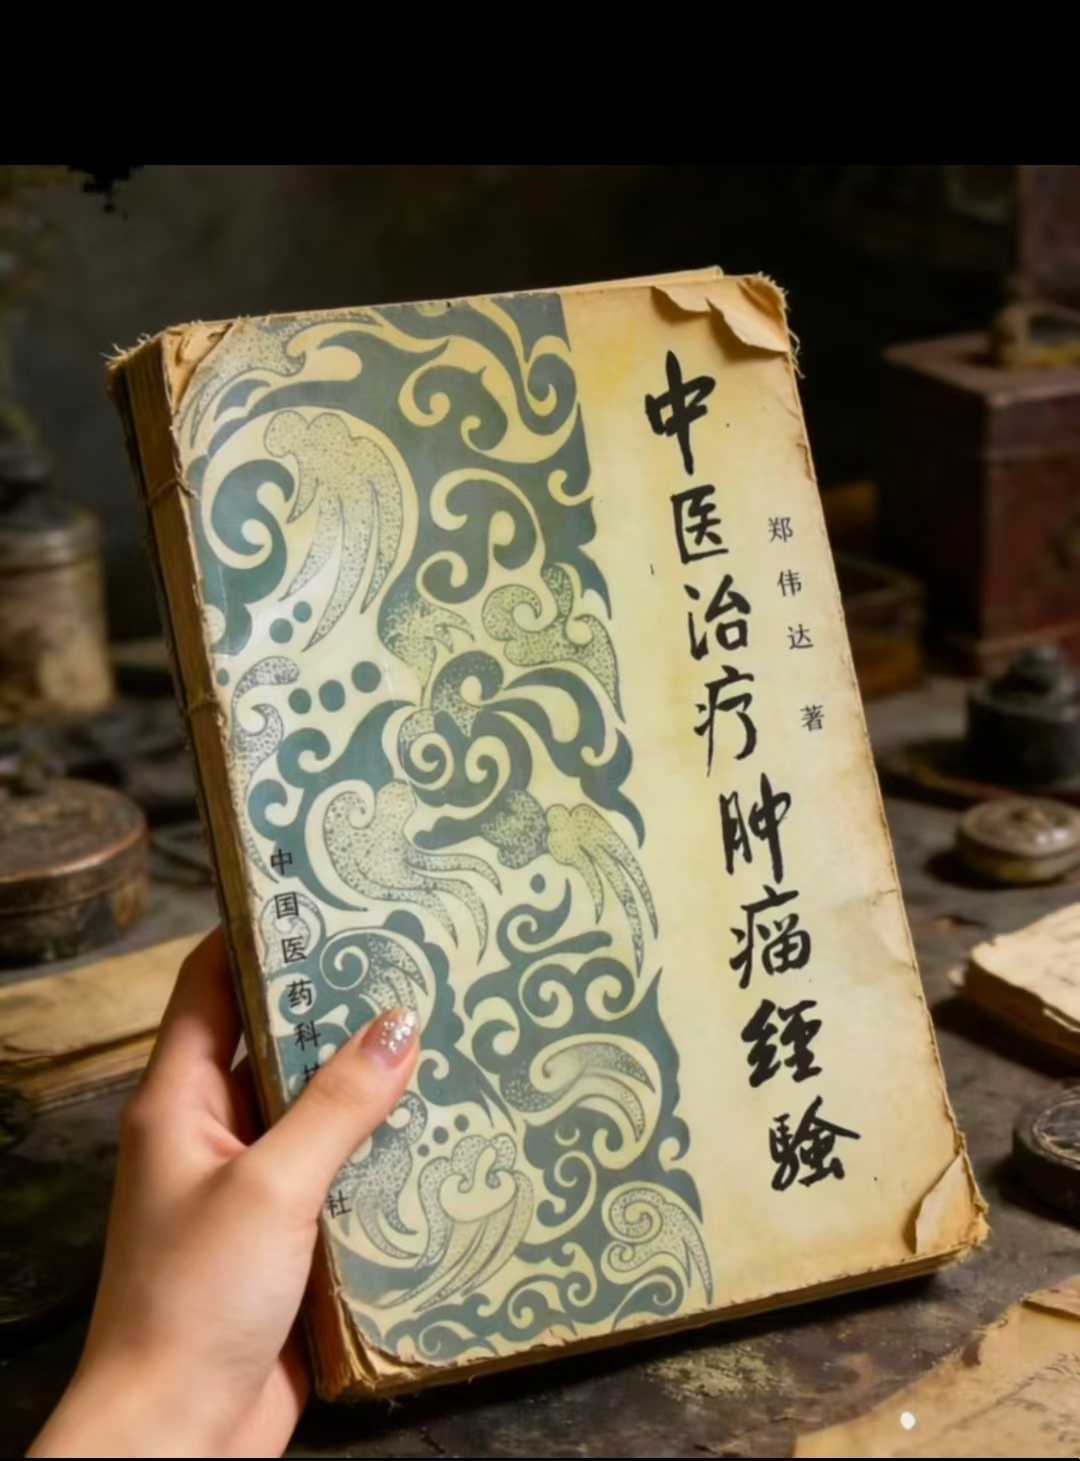 中医治疗肿瘤经验
郑伟达 著
中国医药科
社